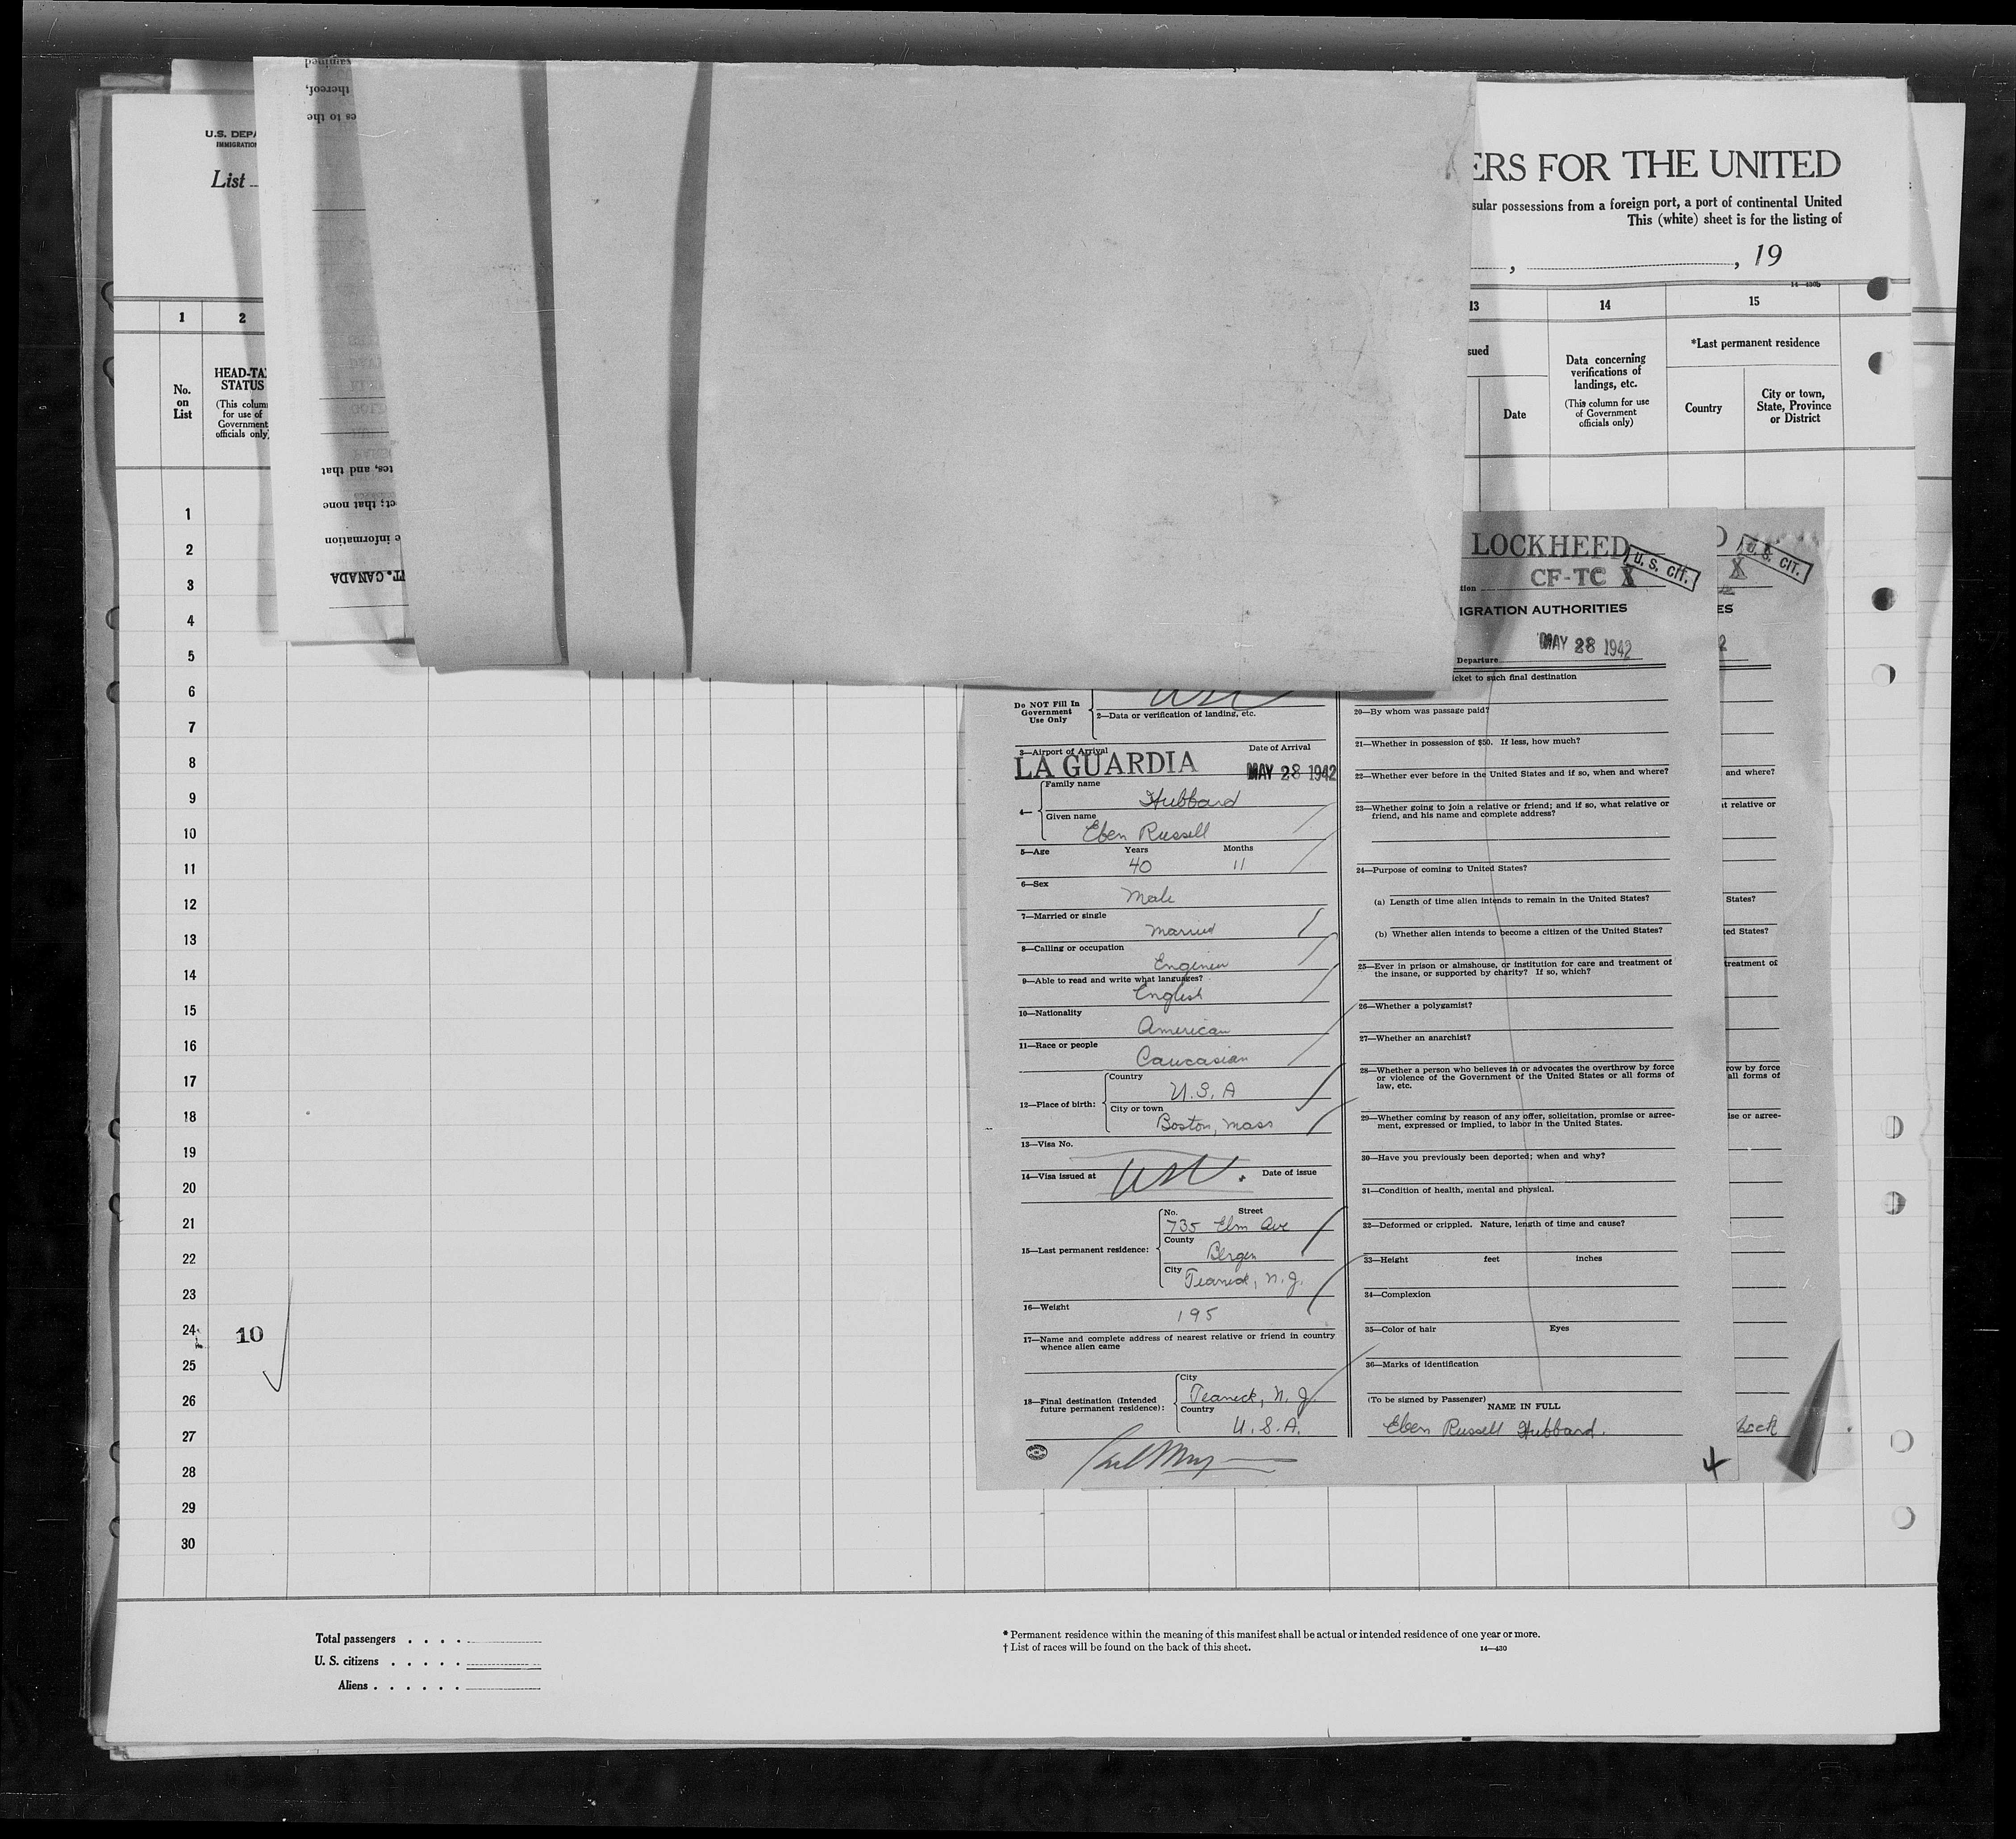 U.S. DEPA
IMMIGRATION
List
ERS FOR THE UNITED
sular possessions from a foreign port, a port of continental United
This (white) sheet is for the listing of
, 19
14—430b
1 2 13 14 15
No. on List
HEAD-TAX STATUS
(This column for use of Government officials only)
sued
Date
Data concerning verifications of landings, etc.
(This column for use of Government officials only)
*Last permanent residence
Country
City or town, State, Province or District
amined
thereof,
es to the
tes, and that
ct; that none
e information
PT. CANADA
1
2
3
4
5
6
7
8
9
10
11
12
13
14
15
16
17
18
19
20
21
22
23
24 10
25
26
27
28
29
30
LOCKHEED
U. S. CIT.
tion CF-TC X
IGRATION AUTHORITIES
Departure MAY 28 1942
Do NOT Fill In
Government
Use Only
2—Data or verification of landing, etc.
3—Airport of Arrival Date of Arrival
LA GUARDIA MAY 28 1942
4— Family name
Hubbard
Given name
Eben Russell
5—Age Years Months
40 11
6—Sex
Male
7—Married or single
Married
8—Calling or occupation
Engineer
9—Able to read and write what languages?
English
10—Nationality
American
11—Race or people
Caucasian
12—Place of birth:
Country
U.S.A
City or town
Boston, Mass
13—Visa No.
14—Visa issued at Date of issue
15—Last permanent residence:
No. Street
735 Elm Ave
County
Bergen
City Teaneck, N.J.
16—Weight
195
17—Name and complete address of nearest relative or friend in country
whence alien came
18—Final destination (Intended
future permanent residence):
City
Teaneck, N.J.
Country
U.S.A.
icket to such final destination
20—By whom was passage paid?
21—Whether in possession of $50. If less, how much?
22—Whether ever before in the United States and if so, when and where?
23—Whether going to join a relative or friend; and if so, what relative or
friend, and his name and complete address?
24—Purpose of coming to United States?
(a) Length of time alien intends to remain in the United States?
(b) Whether alien intends to become a citizen of the United States?
25—Ever in prison or almshouse, or institution for care and treatment of
the insane, or supported by charity? If so, which?
26—Whether a polygamist?
27—Whether an anarchist?
28—Whether a person who believes in or advocates the overthrow by force
or violence of the Government of the United States or all forms of
law, etc.
29—Whether coming by reason of any offer, solicitation, promise or agree-
ment, expressed or implied, to labor in the United States.
30—Have you previously been deported; when and why?
31—Condition of health, mental and physical.
32—Deformed or crippled. Nature, length of time and cause?
33—Height feet inches
34—Complexion
35—Color of hair Eyes
36—Marks of identification
(To be signed by Passenger)
NAME IN FULL
Eben Russell Hubbard.
4
U. S. CIT.
X
ES
2
and where?
t relative or
States?
ted States?
treatment of
row by force
all forms of
ise or agree-
Total passengers . . . .
U. S. citizens . . . . .
Aliens . . . . . .
* Permanent residence within the meaning of this manifest shall be actual or intended residence of one year or more.
† List of races will be found on the back of this sheet. 14—430